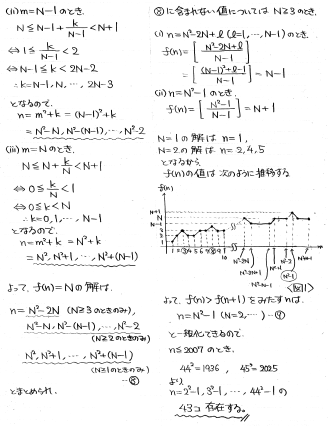 (ii) m=N-1のとき.
N ≦ N-1 + k/(N-1) < N+1
⇔ 1 ≦ k/(N-1) < 2
⇔ N-1 ≦ k < 2N-2
∴ k=N-1, N, …, 2N-3
となるので.
n=m²+k=(N-1)²+k
=N²-N, N²-(N-1), …, N²-2
(iii) m=Nのとき.
N ≦ N + k/N < N+1
⇔ 0 ≦ k/N < 1
⇔ 0 ≦ k < N
∴ k=0, 1, …, N-1
となるので
n=m²+k=N²+k
=N², N²+1, …, N²+(N-1)
よって f(n)=Nの解は.
n= N²-2N (N≧3のときのみ),
N²-N, N²-(N-1), …, N²-2
(N≧2のときのみ)
N², N²+1, …, N²+(N-1)
(N≧1のときのみ)
とまとめられ.
⑧に含まれない値については N≧3のとき.
(i) n=N²-2N+l (l=1, …, N-1)のとき.
f(n)=[ (N²-2N+l)/(N-1) ]
=[ ((N-1)²+l-1)/(N-1) ]=N-1
(ii) n=N²-1のとき.
f(n)=[ (N²-1)/(N-1) ]=N+1
N=1の解は n=1,
N=2の解は n=2,4,5
となるから
f(n)の値は次のように推移する
f(n)
N+1
N
N-1
N²-2N
N²-N
N²-2
N²-1
<図1>
よって, f(n)>f(n+1)をみたすnは.
n=N²-1 (N=2, …) -⑨
と一般化できるので.
n≦2007のとき.
44²=1936, 45²=2025
より
n=2²-1, 3²-1, …, 44²-1の
43コ存在する.